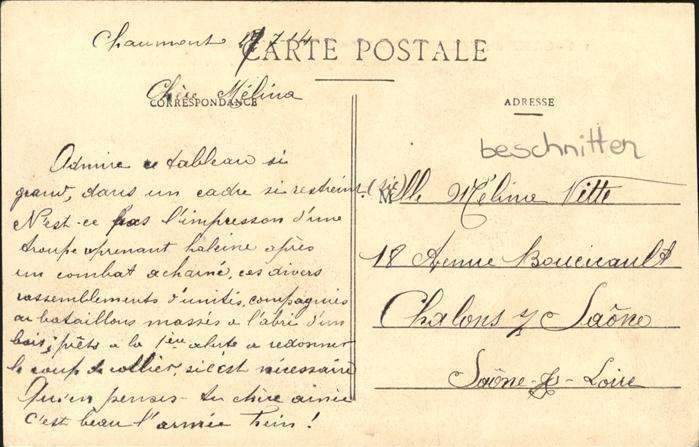 Chaumont 17.7.14
CARTE POSTALE
Chère Mélina
CORRESPONDANCE
Admire ce tableau si
grand, dans un cadre si restreint. (sic)
N'est-ce pas l'impression d'une
troupe aprenant haleine après
un combat acharné, ces divers
rassemblements d'unités, compagnies
ou bataillons massés a l'abri d'un
bois; prêts a la 1ère alerte a redonner
le coup de collier, si c'est nécessaire
Qu'en penses-tu chère ainée
C'est beau l'armée hein!
ADRESSE
beschnitten
Mlle Mélina Vitte
18 Avenue Boucicault
Chalons s/ Saône
Saône-&-Loire